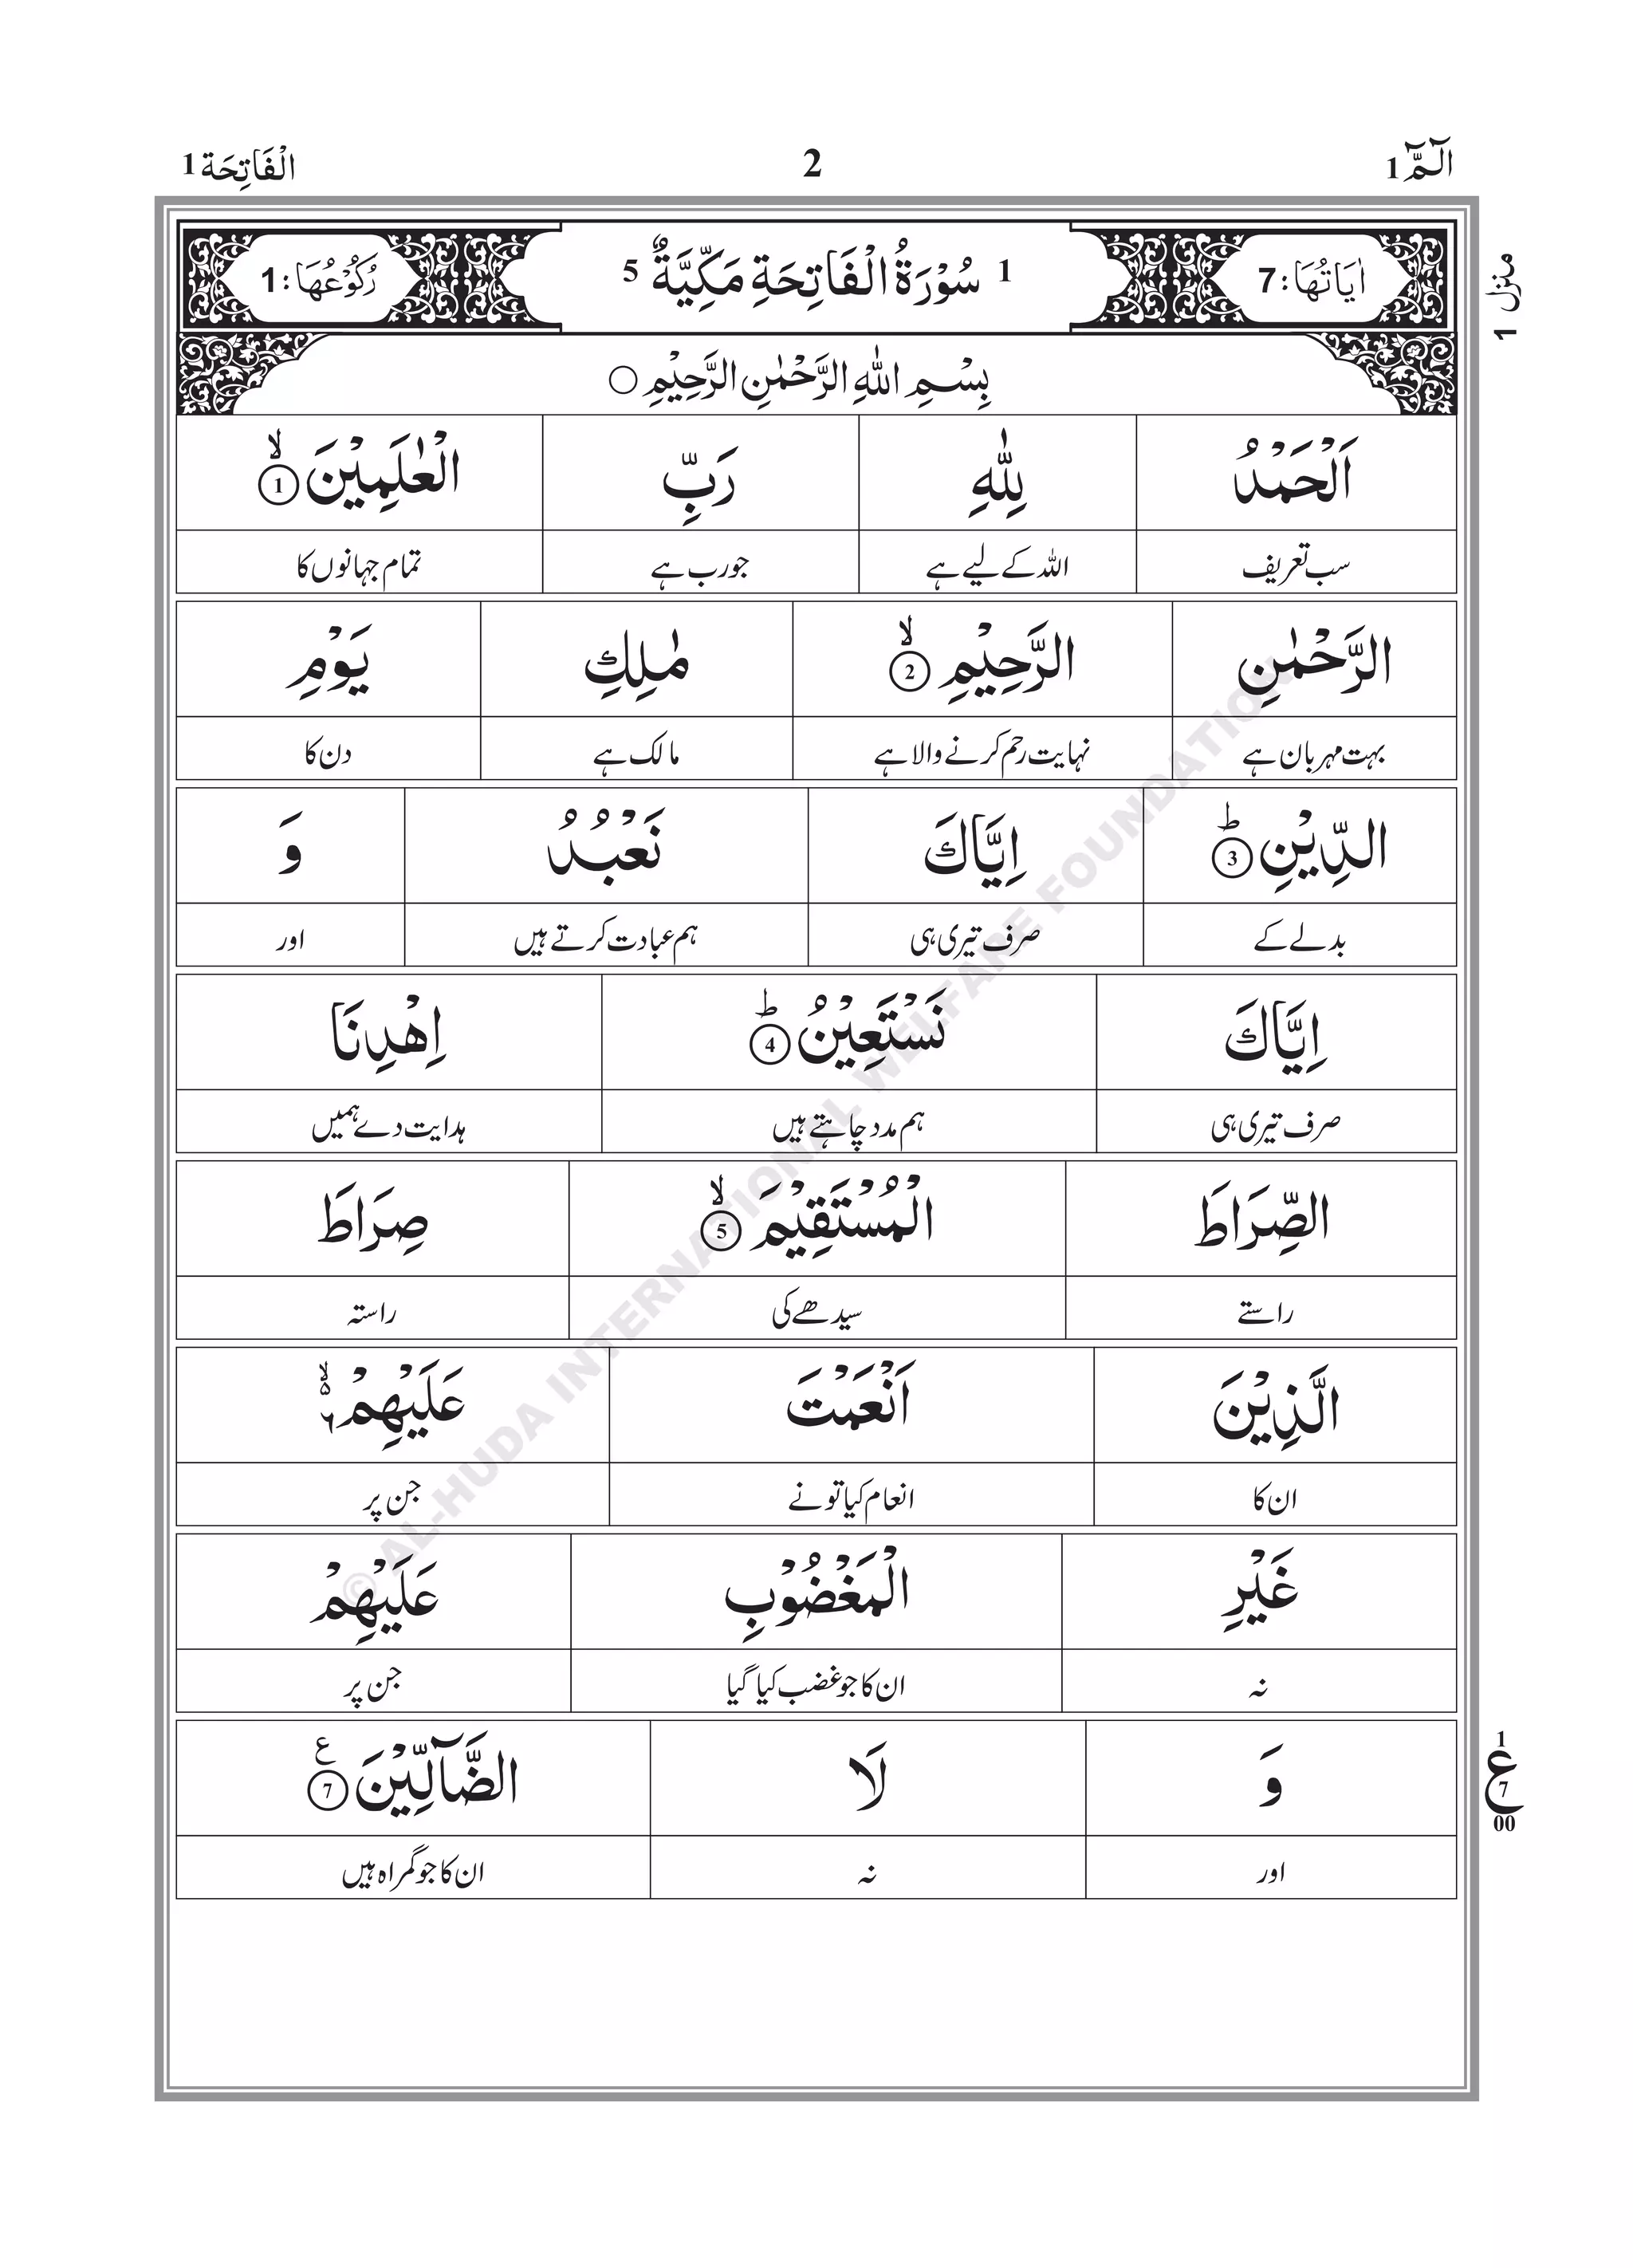 الٓمّٓ 1
2
الْفَاتِحَة 1
منزل 1
اٰيَاتُهَا: 7
1 سُوْرَةُ الْفَاتِحَةِ مَكِّيَّةٌ 5
رُكُوْعُهَا: 1
بِسْمِ اللّٰهِ الرَّحْمٰنِ الرَّحِيْمِ ○
اَلْحَمْدُ لِلّٰهِ رَبِّ الْعٰلَمِيْنَ ۙ 1
سب تعریف اللہ کے لیے ہے جو رب ہے تمام جہانوں کا
الرَّحْمٰنِ الرَّحِيْمِ ۙ 2 مٰلِكِ يَوْمِ
بہت مہربان ہے نہایت رحم کرنے والا ہے مالک ہے دن کا
الدِّيْنِ ؕ 3 اِيَّاكَ نَعْبُدُ وَ
بدلے کے صرف تیری ہی ہم عبادت کرتے ہیں اور
اِيَّاكَ نَسْتَعِيْنُ ؕ 4 اِهْدِنَا
صرف تیری ہی ہم مدد چاہتے ہیں ہدایت دے ہمیں
الصِّرَاطَ الْمُسْتَقِيْمَ ۙ 5 صِرَاطَ
راستے سیدھے کی راستہ
الَّذِيْنَ اَنْعَمْتَ عَلَيْهِمْ ۙ۵ ٦
ان کا انعام کیا تو نے جن پر
غَيْرِ الْمَغْضُوْبِ عَلَيْهِمْ
نہ ان کا جو غضب کیا گیا جن پر
وَ لَا الضَّآلِّيْنَ ع 7
اور نہ ان کا جو گمراہ ہیں
1
ع
7
00
© AL-HUDA INTERNATIONAL WELFARE FOUNDATION